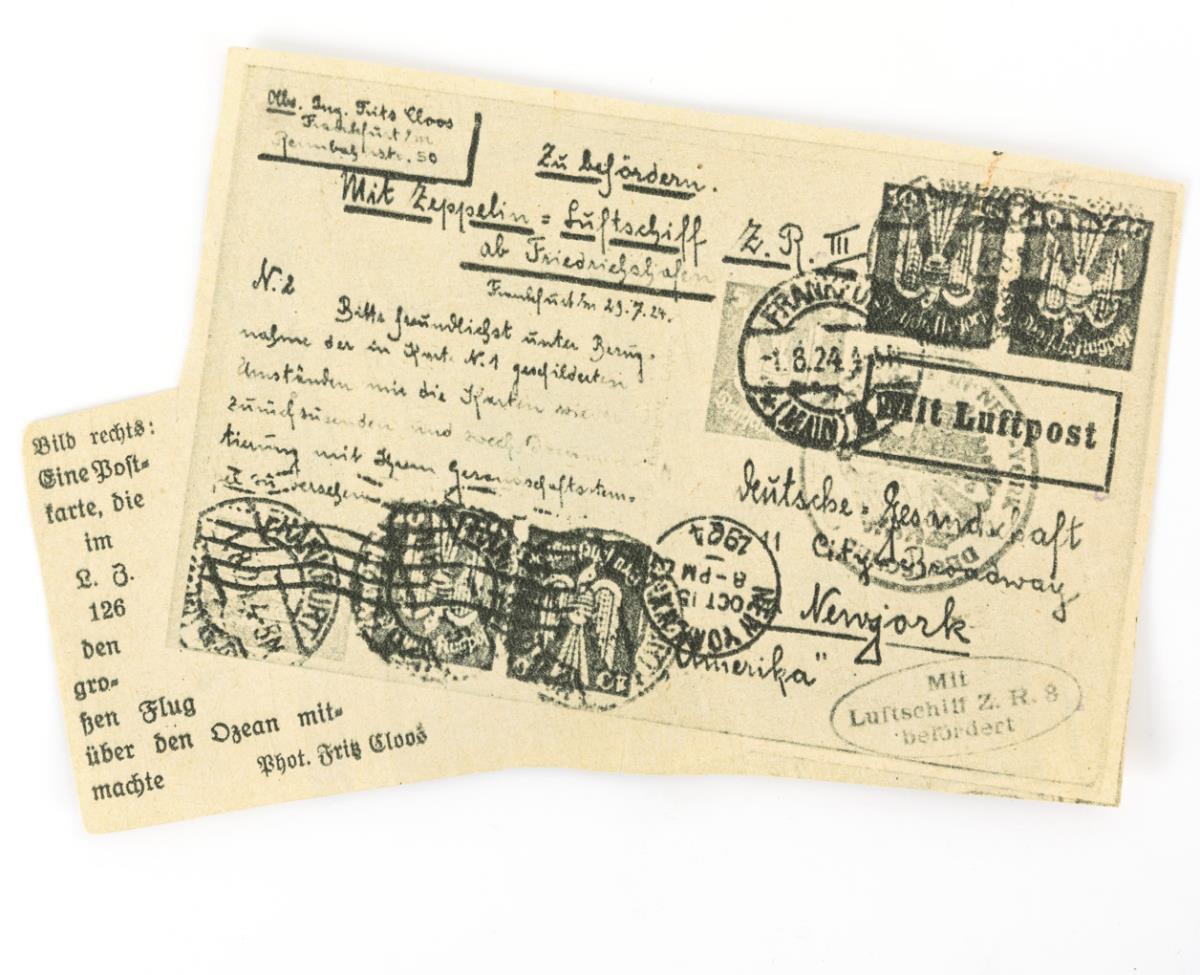 Abs. Ing. Fritz Cloos
Frankfurt/m
Rennbahnstr. 50
Zu befördern.
Mit Zeppelin = Luftschiff Z. R. III
ab Friedrichshafen
Frankfurt/m 29.7.24.
N. 2
Bitte freundlichst unter Bezug-
nahme der in Kart. N. 1 geschilderten
Umständen mir die Karten
zurückzusenden und
tierung mit Ihrem Gesandschaftstem-
zu versehen
FRANKFU
-1.8.24.
(MAIN)
Mit Luftpost
Deutsche = Gesandschaft
11 City = Broadway
Newyork
"Amerika"
NEW YORK, N.Y.
OCT 15
8-PM
1924
FRANKFURT
Mit
Luftschiff Z. R. 3
befördert
Bild rechts:
Eine Post-
karte, die
im
L. Z.
126
den
gro-
ßen Flug
über den Ozean mit-
machte
Phot. Fritz Cloos